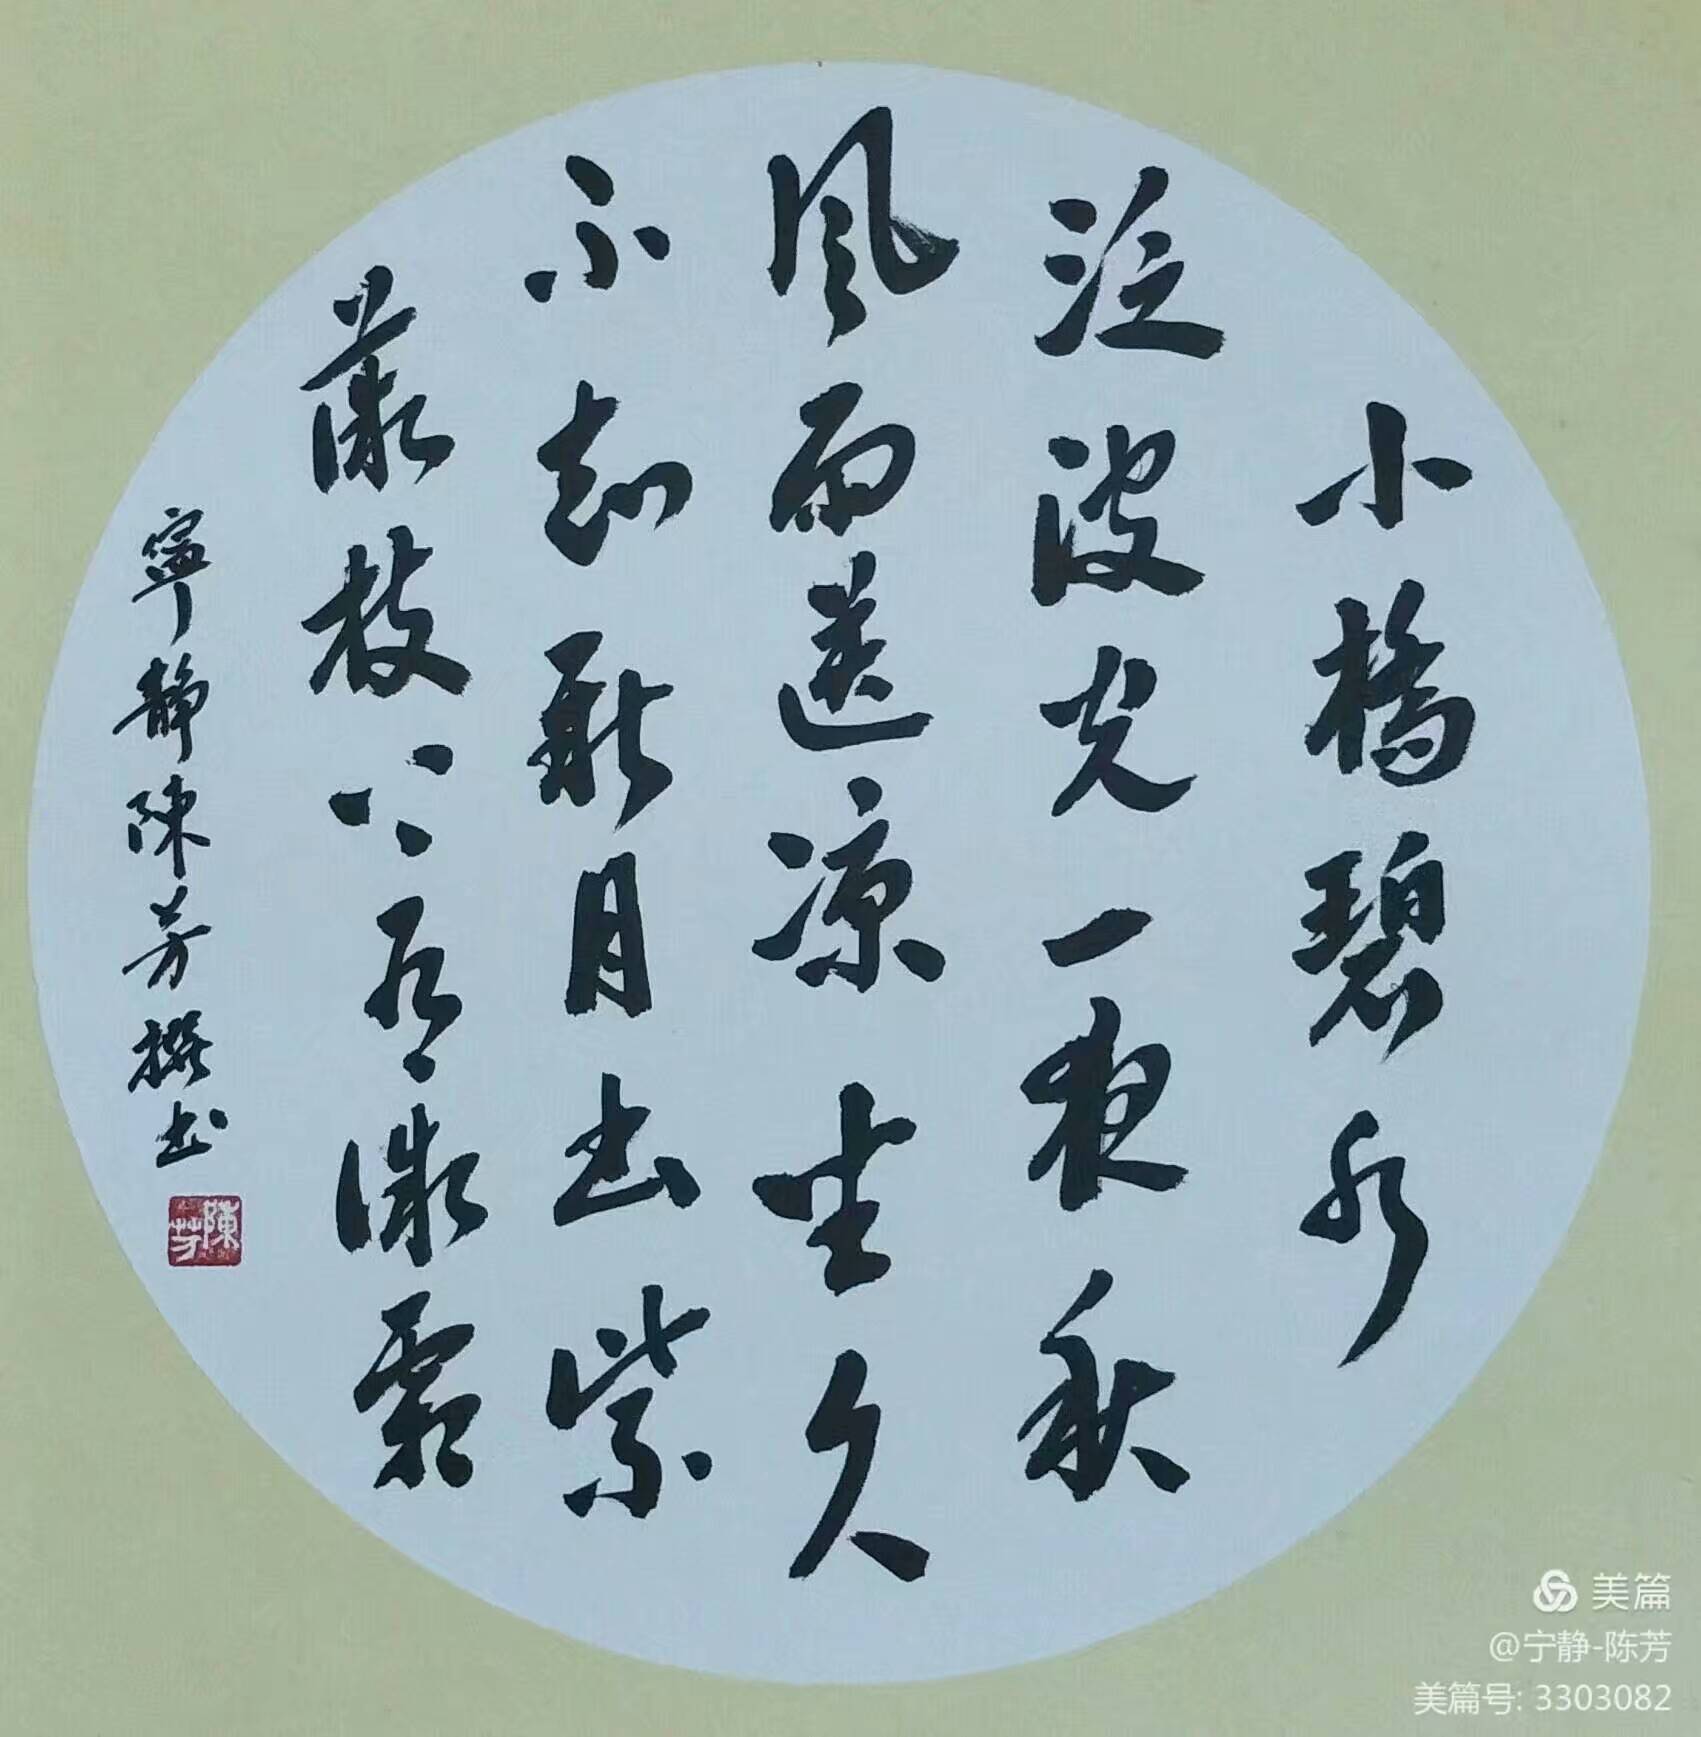 小橋碧水
泛波光一夜秋
風雨送凉坐久
不知新月出紫
薇枝上有微霜
寧静陳芳撰书
陳芳
美篇
@宁静-陈芳
美篇号: 3303082